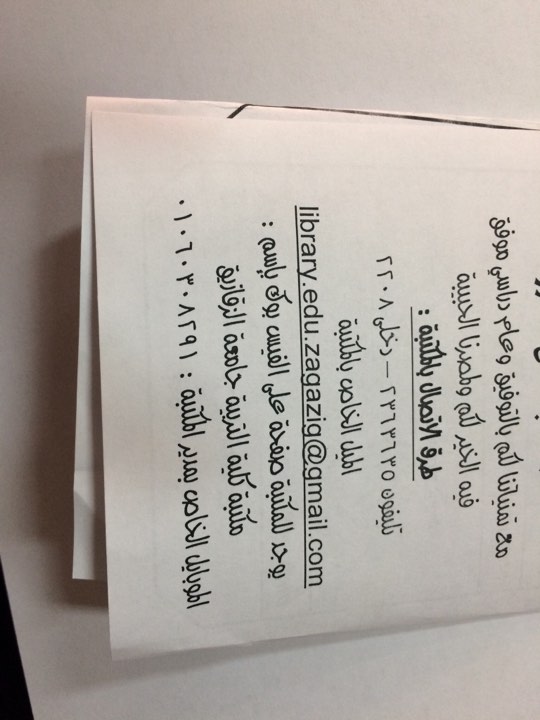 مع تمنياتنا لكم بالتوفيق وعام دراسي موفق
فيه الخير لكم ولمصرنا الحبيبة
طرق الاتصال بالمكتبة :
تليفون ٢٣٦٣٦٣٥ – دخلى ٢٢٠٨
الميل الخاص بالمكتبة
library.edu.zagazig@gmail.com
يوجد للمكتبة صفحة على الفيس بوك باسم :
مكتبة كلية التربية جامعة الزقازيق
الموبايل الخاص بمدير المكتبة : ٠١٠٦٠٣٠٨٢٩١